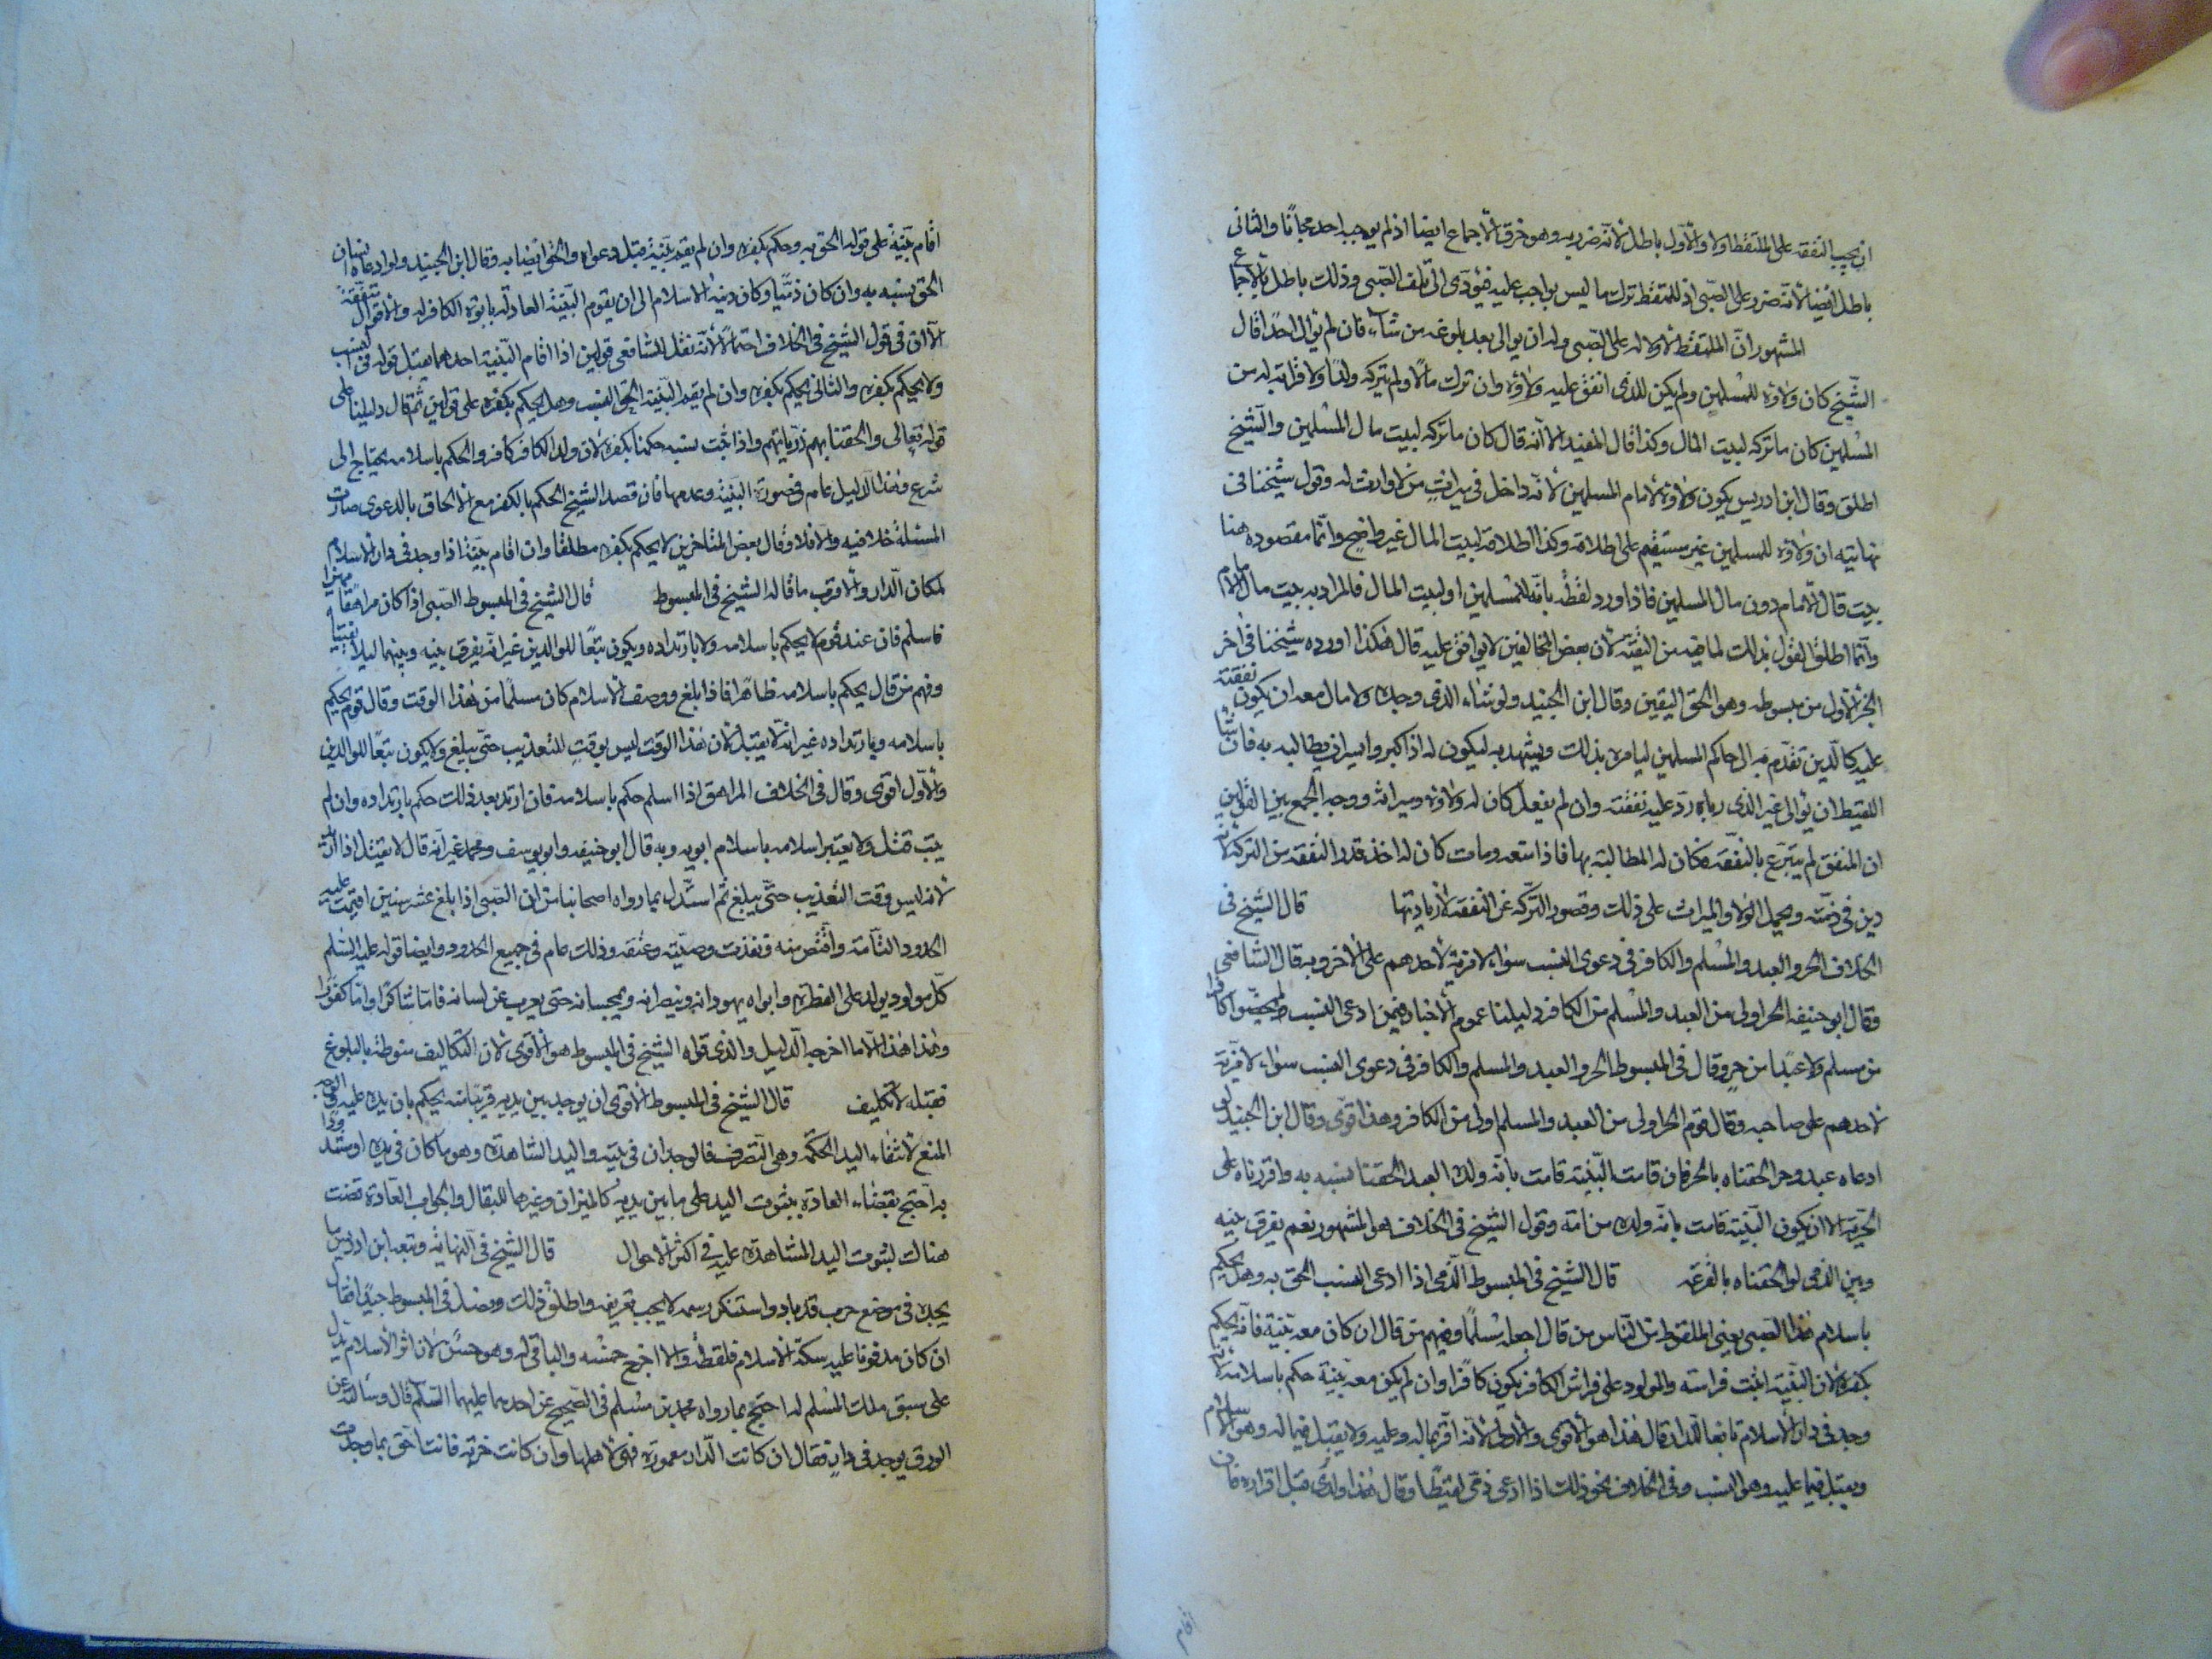 ان يجب النفقه على الملتقط اولا والأول باطل لانه ضرر به وهو خرق الاجماع ايضا اذ لم يوجب احد مجانا والثانى
باطل ايضا لانه ضرر على الصبى اذ للملتقط ترك ما ليس بواجب عليه فيؤدى الى تلف الصبى وذلك باطل بالاجماع
المشهور ان الملتقط لا ولاء له على الصبى وله ان يوالى بعد بلوغه من شاء فان لم يوال احدا قال
الشيخ كان ولاؤه للمسلمين ولم يكن للذى انفق عليه ولاؤه وان ترك مالا ولم يترك ولدا ولا قرابة له من
المسلمين كان ما تركه لبيت المال وكذا قال المفيد الا انه قال كان ما تركه لبيت مال المسلمين والشيخ
اطلق وقال ابن ادريس يكون ولاؤه لامام المسلمين لانه داخل فى ميراث من لا وارث له وقول شيخنا فى
نهايته ان ولاؤه للمسلمين غير مستقيم على اطلاقه وكذا اطلاقه لبيت المال غير واضح وانما مقصوده هنا
بيت مال الامام دون مال المسلمين فاذا ورد لفظ بانه للمسلمين او لبيت المال فالمراد به بيت مال الامام
وانما اطلق القول بذلك لما فيه من التقية لان بعض المخالفين لا يوافق عليه قال هكذا اورده شيخنا فى اخر
الجزء الاول من مبسوطه وهو الحق اليقين وقال ابن الجنيد ولو شاء الذى وجده ولا مال معه ان يكون نفقته
عليه كالدين تقدم به الى حاكم المسلمين ليامره بذلك ويشهد به ليكون له اذا كبر وايسر ان يطالبه به فان شاء
اللقيط ان يوالى غير الذى رباه رد عليه نفقته وان لم يفعل كان له ولاؤه وميراثه ووجه الجمع بين القولين
ان المنفق لم يتبرع بالنفقه فكان له المطالبة بها فاذا منعه ومات كان له اخذ قدر النفقه من التركه لانه
دين فى ذمته ويحمل الولاء والميراث على ذلك وقصور التركه عن النفقه لا زيادتها قال الشيخ فى
الخلاف الحر والعبد والمسلم والكافر فى دعوى النسب سواء لا مزية لاحدهم على الاخر وبه قال الشافعى
وقال ابو حنيفه الحر اولى من العبد والمسلم من الكافر دليلنا عموم الاخبار فيمن ادعى النسب ولم يخصوا كافرا
من مسلم ولا عبدا من حر وقال فى المبسوط الحر والعبد والمسلم والكافر فى دعوى النسب سواء لا مزية
لاحدهم على صاحبه وقال قوم الحر اولى من العبد والمسلم اولى من الكافر وهذا قوى وقال ابن الجنيد لو
ادعاه عبد وحر الحقناه بالحر فان قامت البينة قامت بانه ولد العبد الحقنا نسبه به واقررناه على
الحرية الا ان يكون البينة قامت بانه ولده من امة وقول الشيخ فى الخلاف هو المشهور نعم يفرق بينه
وبين الذمى لو الحقناه بالقرعه قال الشيخ فى المبسوط الذمى اذا ادعى النسب الحق به وهل يحكم
باسلام هذا الصبى يعنى الملقوط من الناس من قال اجعله مسلما ومنهم من قال ان كان معه بينة فانه يحكم
بكفره لان البينة اثبتت فراشه والمولود على فراش الكافر يكون كافرا وان لم يكن معه بينة حكم باسلامه لانه
وجد فى دار الاسلام تابعا للدار قال هذا هو الاقوى والاولى لانه اقر بما له وعليه ولا يقبل فيما له وهو الاسلام
ويقبل فيما عليه وهو النسب وفى الخلاف نحو ذلك اذا ادعى ذمى لقيطا وقال هذا ولدى قبل اقراره فان
اقام
اقام بينة على قوله الحق به وحكم بكفره وان لم يقم بينة قبل دعواه والحق ايضا به وقال ابن الجنيد ولو ادعاه
الحق نسبه به وان كان ذميا وكان دينه الاسلام الى ان يقوم البينة العادلة بابوة الكافر له والاقوال متفقة
الا ان فى قول الشيخ فى الخلاف احتمالا لانه نقل للشافعى قولين اذا اقام البينة احدهما يقبل قوله فى النسب
ولا يحكم بكفره والثانى يحكم بكفره وان لم يقم البينة الحق النسب وهل يحكم بكفره على قولين ثم قال دليلنا على
قوله تعالى والحقنا بهم ذرياتهم واذا ثبت نسبه حكمنا بكفره لان ولد الكافر كافر والحكم باسلامه يحتاج الى
شرع وهذا الدليل عام فى صورة البينة وعدمها فان قصد الشيخ الحكم بالكفر مع الالحاق بالدعوى صارت
المسئلة خلافيه والا فلا وقال بعض المتاخرين لا يحكم بكفره مطلقا وان اقام بينة اذا وجد فى دار الاسلام
لمكان الدار والاقرب ما قاله الشيخ فى المبسوط قال الشيخ فى المبسوط الصبى اذا كان مراهقا مميزا
فاسلم فان عند قوم لا يحكم باسلامه ولا بارتداده ويكون تبعا للوالدين غير انه يفرق بينه وبينهما لئلا يفتناه
ومنهم من قال يحكم باسلامه ظاهرا فاذا بلغ ووصف الاسلام كان مسلما من هذا الوقت وقال قوم يحكم
باسلامه وبارتداده غير انه لا يقتل لان هذا الوقت ليس بوقت للتعذيب حتى يبلغ ولا يكون تبعا للوالدين
والاول اقوى وقال فى الخلاف المراهق اذا اسلم حكم باسلامه فان ارتد بعد ذلك حكم بارتداده وان لم
يتب قتل ولا يعتبر اسلامه باسلام ابويه وبه قال ابو حنيفه وابو يوسف ومحمد غير انه قال لا يقتل اذا ارتد
لانه ليس وقت التعذيب حتى يبلغ ثم استدل بما رواه اصحابنا من ان الصبى اذا بلغ عشر سنين اقيمت عليه
الحدود التامة واقتص منه ونفذت وصيته وعتقه وذلك عام فى جميع الحدود وايضا قوله عليه السلم
كل مولود يولد على الفطرة وابواه يهودانه وينصرانه ويمجسانه حتى يعرب عن لسانه فاما شاكرا واما كفورا
وهذا هذا الا ما اخرجه الدليل والذى قواه الشيخ فى المبسوط هو الاقوى لان التكاليف منوطة بالبلوغ
فقبله لا تكليف قال الشيخ فى المبسوط الاقوى ان يوجد بين يديه قريبا منه يحكم بان يده عليه والوجه
المنع لانتفاء اليد الحكمية وهى التصرف فالوجدان فى بيته واليد الشاهدة وهو ما كان فى يده او مشدودا
به احتج بقضاء العادة بثبوت اليد على ما بين يديه كالميزان وغيرها للبقال والجواب العادة قضت
هناك لثبوت اليد المشاهدة عليه فى اكثر الاحوال قال الشيخ فى النهاية وتبعه ابن ادريس ما
يجده فى موضع خرب قد باد واستنكر رسمه لا يجب تعريفه واطلق ذلك وفصل فى المبسوط جيدا فقال
ان كان مدفونا عليه سكة الاسلام فلقطة والا اخرج خمسه والباقى له وهو حسن لان اثر الاسلام يدل
على سبق ملك المسلم له احتج بما رواه محمد بن مسلم فى الصحيح عن احدهما عليهما السلم قال وسالته عن
الورق يوجد فى دار فقال ان كانت الدار معمورة فهى لاهلها وان كانت خربة فانت احق بما وجدت